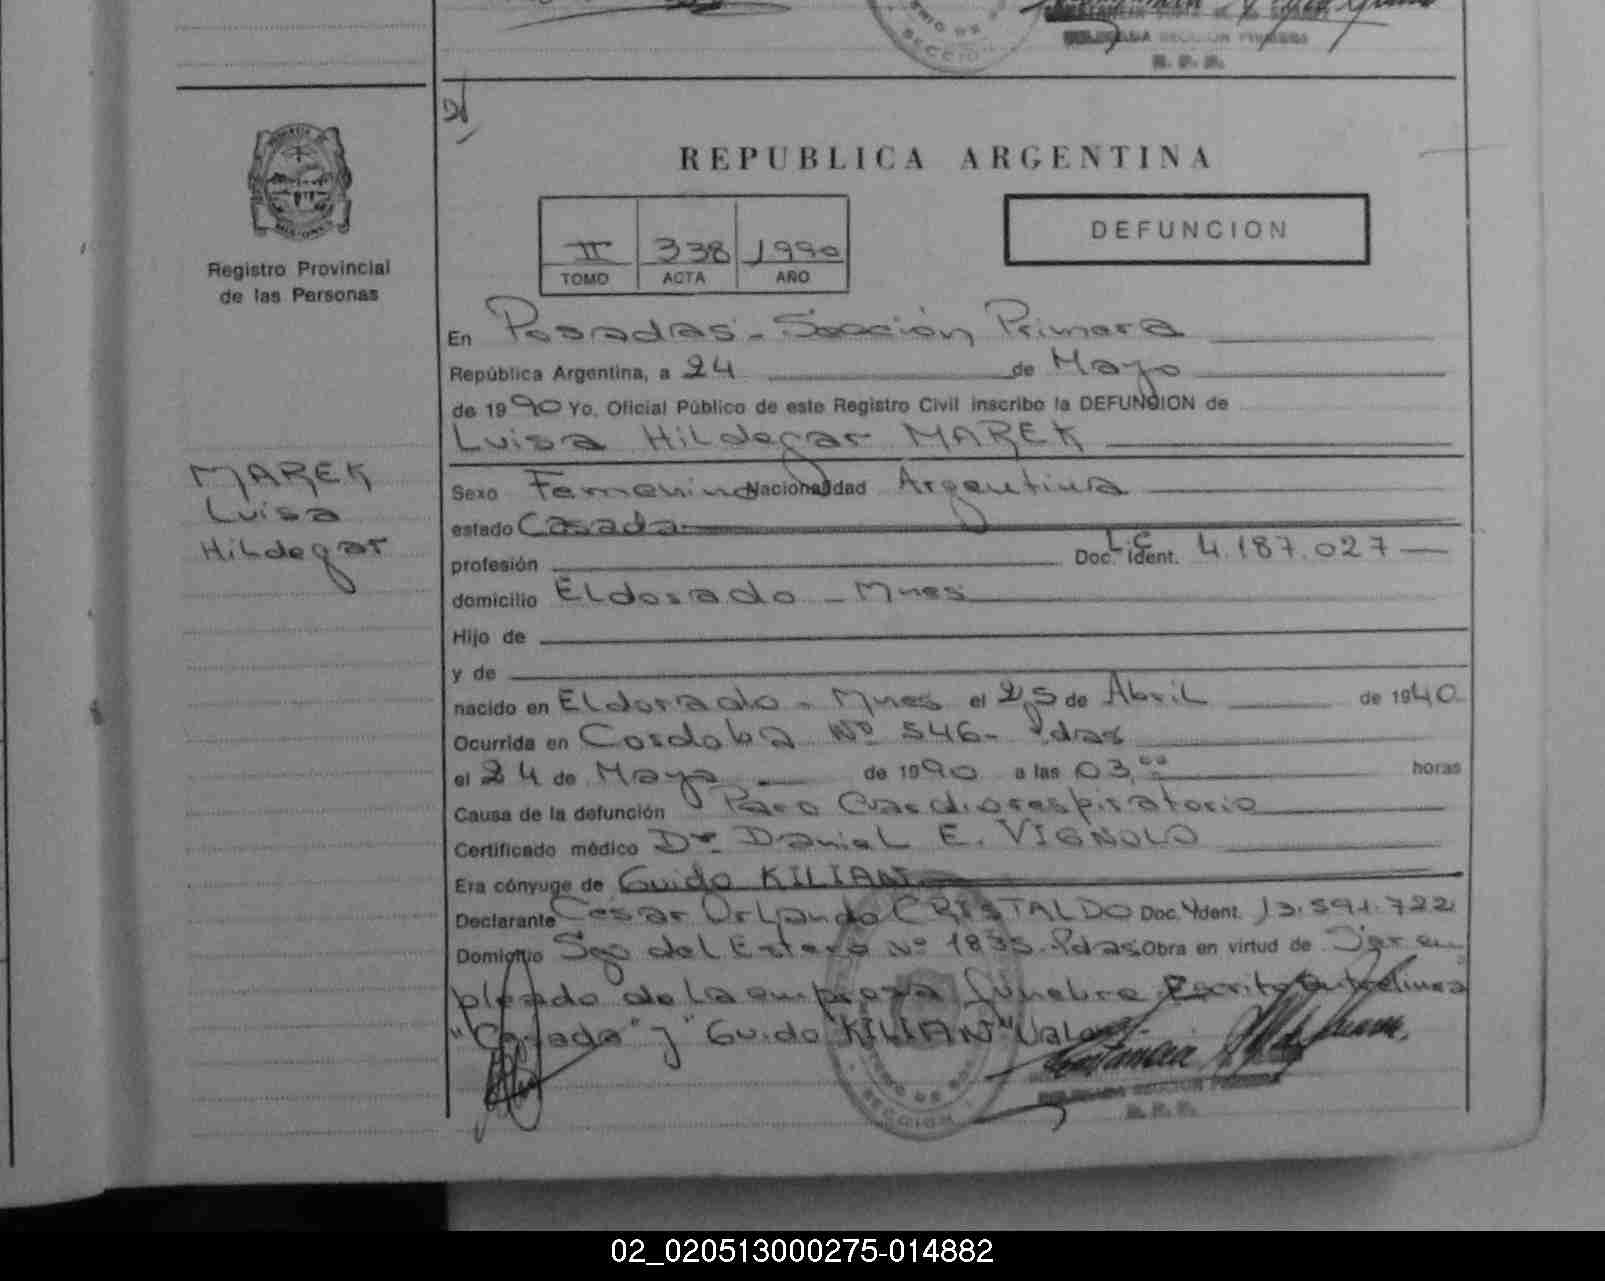 REPUBLICA ARGENTINA
II 338 1990
TOMO ACTA AÑO
DEFUNCION
Registro Provincial
de las Personas
MAREK
Luisa
Hildegar
En Posadas - Sección Primera
República Argentina, a 24 de Mayo
de 1990 Yo, Oficial Público de este Registro Civil inscribo la DEFUNCION de
Luisa Hildegar MAREK
Sexo Femenino Nacionalidad Argentina
estado Casada
profesión Doc. Ident. L.C 4.187.027
domicilio Eldorado - Mnes
Hijo de
y de
nacido en Eldorado - Mnes el 25 de Abril de 1940
Ocurrida en Cordoba Nº 546- Pdas
el 24 de Mayo de 1990 a las 03,00 horas
Causa de la defunción Paro Cardiorespiratorio
Certificado médico Dr Daniel E. VIGNOLO
Era cónyuge de Guido KILIAN
Declarante César Orlando CRISTALDO Doc. Ident. 13.591.722
Domicilio Sgo del Estero Nº 1835- Pdas Obra en virtud de Ser em
pleado de la empresa fúnebre Escrito entrelinea
"Casada" y "Guido KILIAN" Vale-
SECCION
02_020513000275-014882